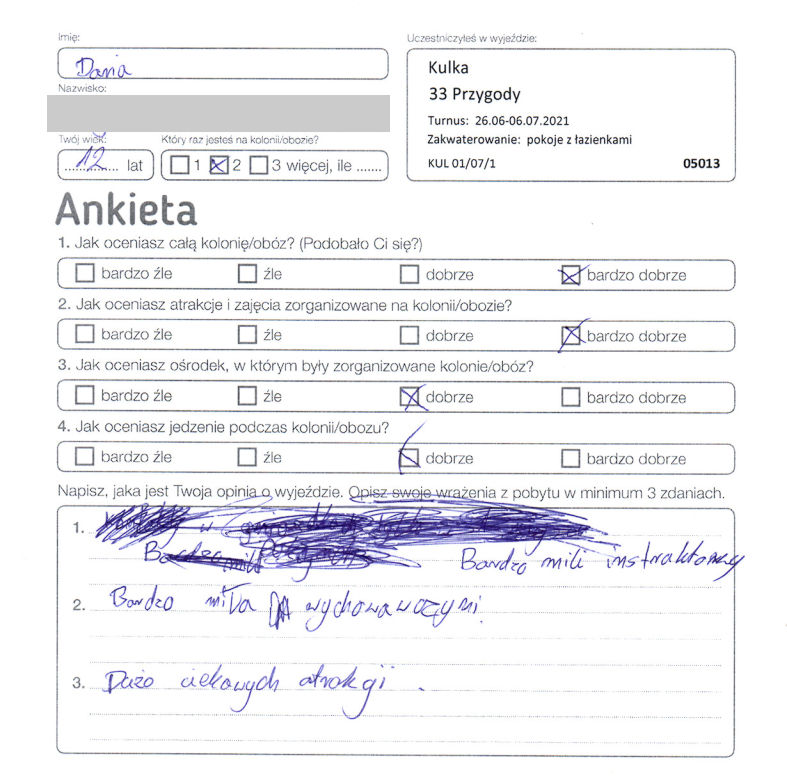 Imię:
Daria
Nazwisko:
Twój wiek:
12 lat
Który raz jesteś na kolonii/obozie?
1 2 3 więcej, ile .......
Uczestniczyłeś w wyjeździe:
Kulka
33 Przygody
Turnus: 26.06-06.07.2021
Zakwaterowanie: pokoje z łazienkami
KUL 01/07/1 05013
Ankieta
1. Jak oceniasz całą kolonię/obóz? (Podobało Ci się?)
bardzo źle źle dobrze bardzo dobrze
2. Jak oceniasz atrakcje i zajęcia zorganizowane na kolonii/obozie?
bardzo źle źle dobrze bardzo dobrze
3. Jak oceniasz ośrodek, w którym były zorganizowane kolonie/obóz?
bardzo źle źle dobrze bardzo dobrze
4. Jak oceniasz jedzenie podczas kolonii/obozu?
bardzo źle źle dobrze bardzo dobrze
Napisz, jaka jest Twoja opinia o wyjeździe. Opisz swoje wrażenia z pobytu w minimum 3 zdaniach.
1.
Bardzo mili instraktorzy
2. Bardzo miła wychowawczyni.
3. Dużo ciekawych atrakcji.